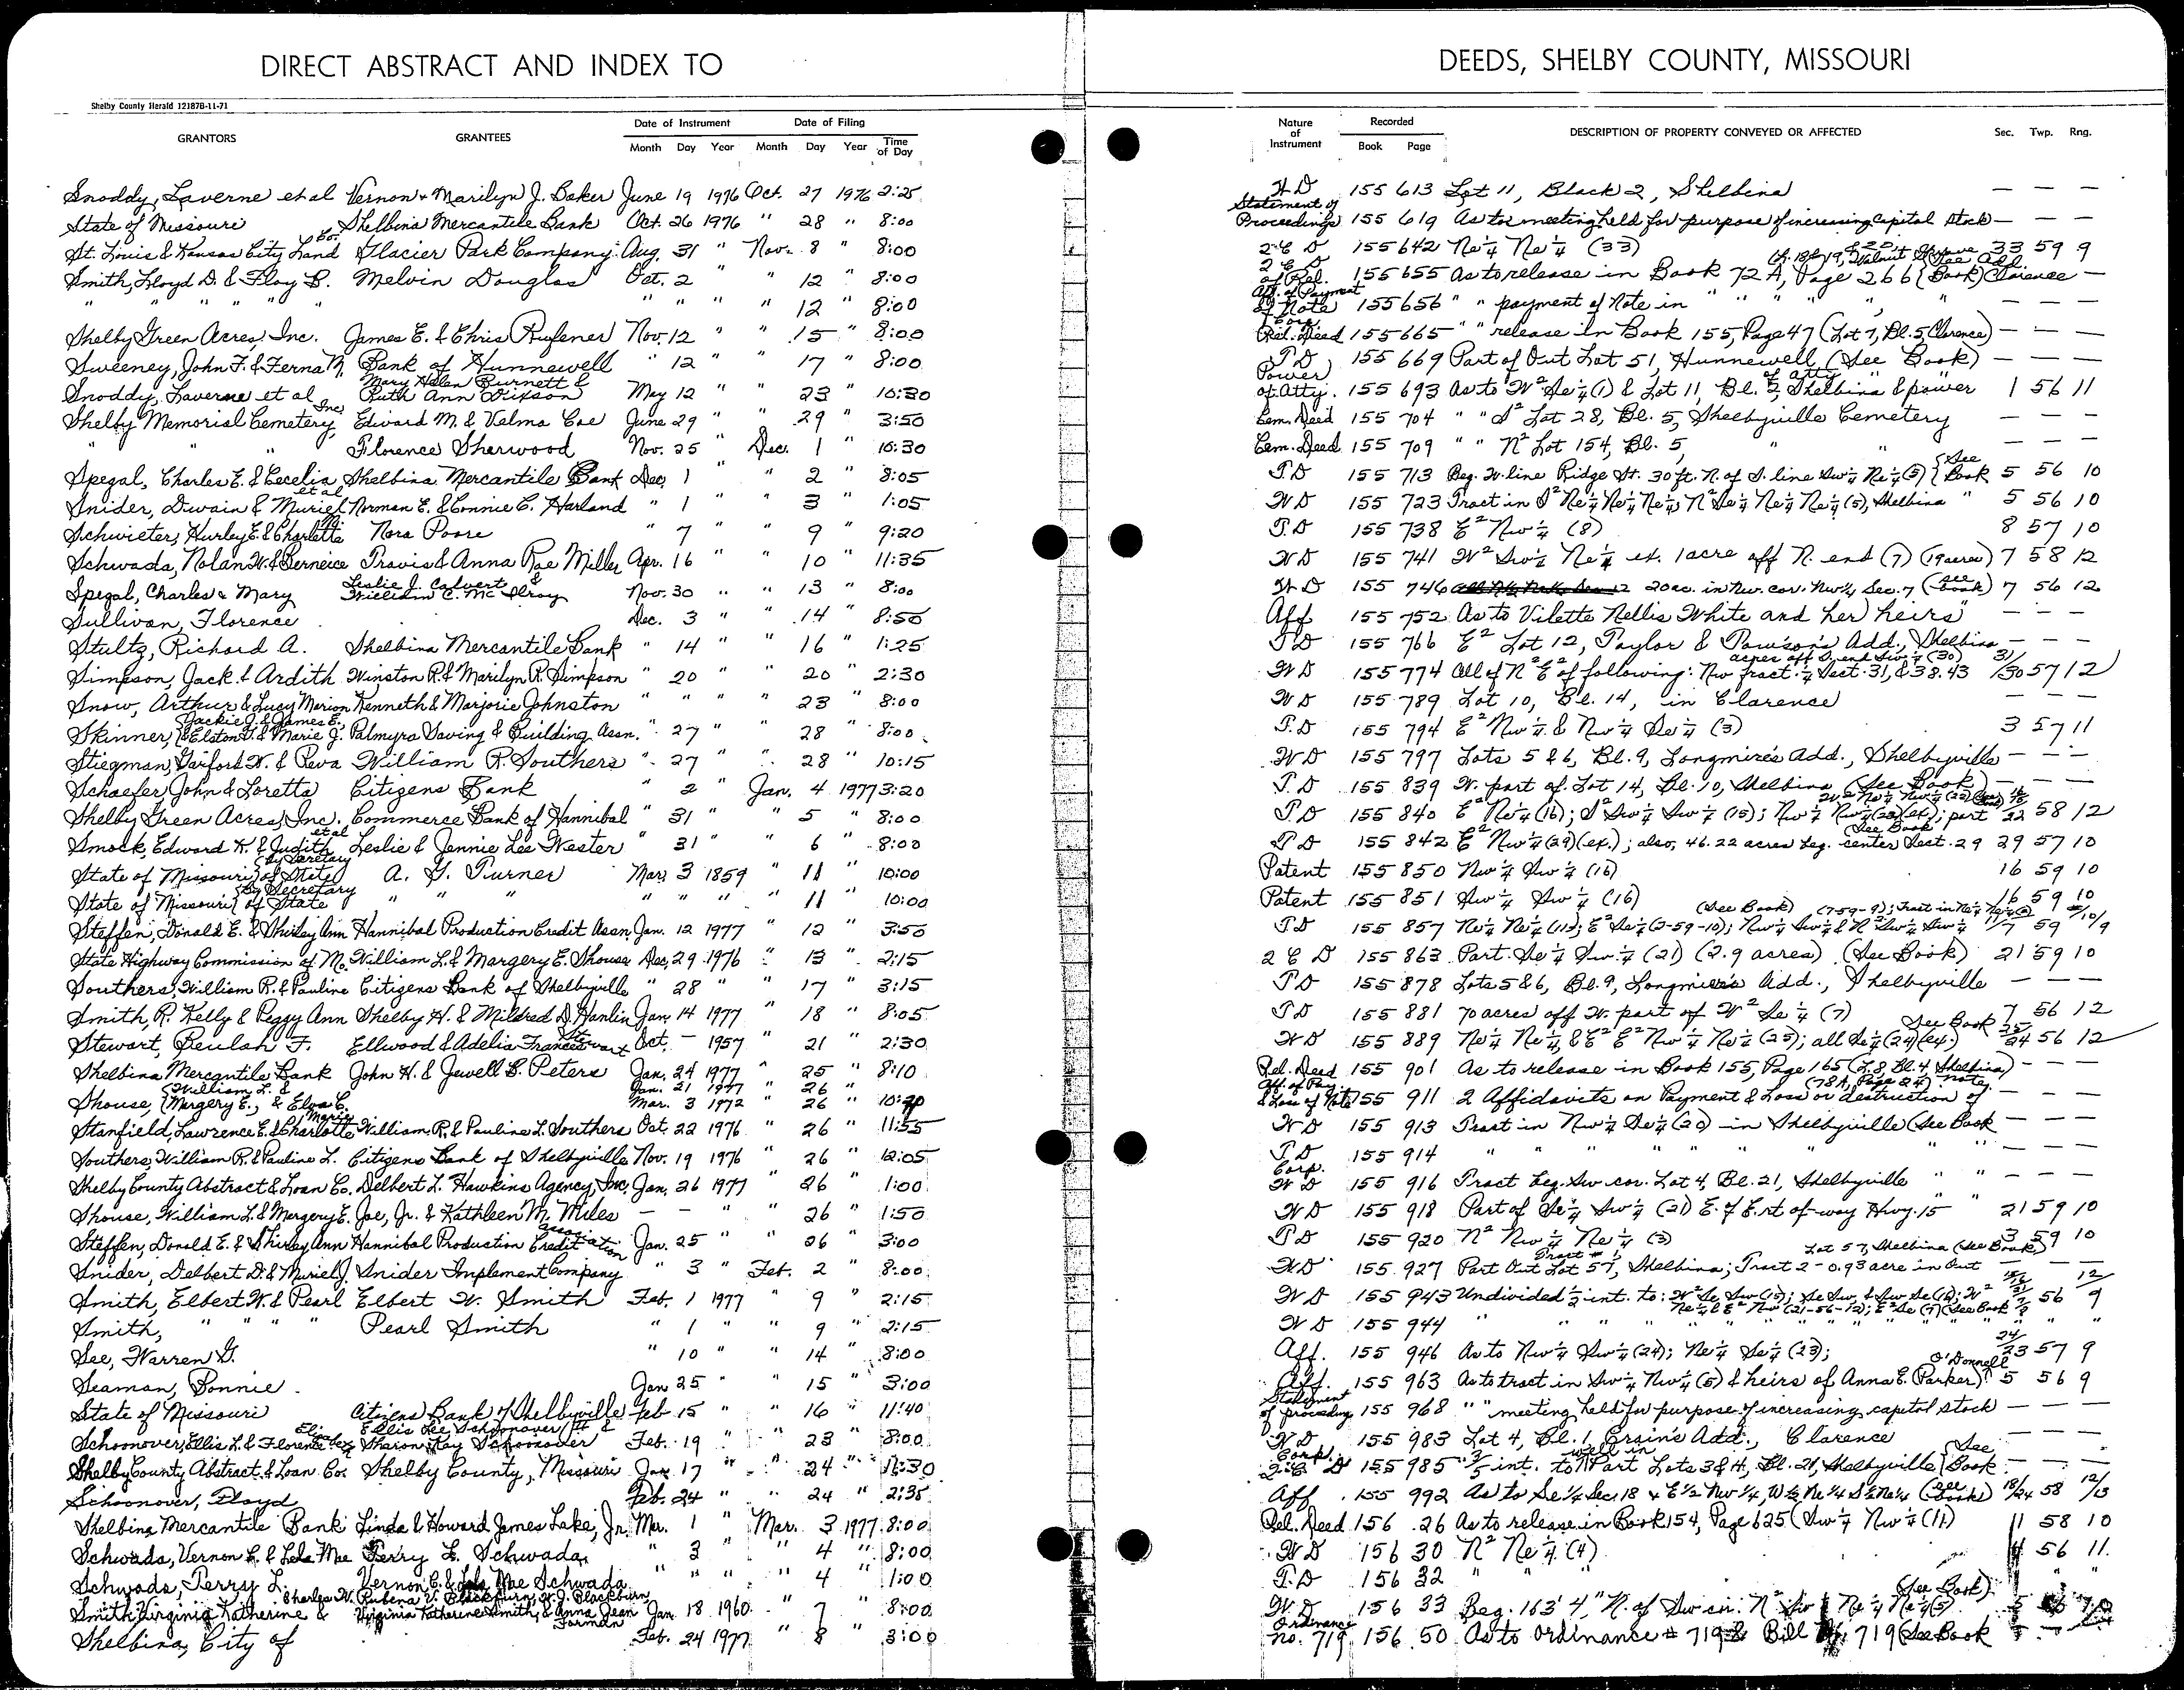 DIRECT ABSTRACT AND INDEX TO DEEDS, SHELBY COUNTY, MISSOURI
Shelby County Herald 12187B-11-71
GRANTORS GRANTEES Date of Instrument Month Day Year Date of Filing Month Day Year Time of Day Nature of Instrument Recorded Book Page DESCRIPTION OF PROPERTY CONVEYED OR AFFECTED Sec. Twp. Rng.
Snoddy, Laverne et al Vernon & Marilyn J. Baker June 19 1976 Oct. 27 1976 2:25 WD 155 613 Lot 11, Block 2, Shelbina — — —
State of Missouri Shelbina Mercantile Bank Oct. 26 1976 " 28 " 8:00 Statement of Proceedings 155 619 As to meeting held for purpose of increasing capital stock — — —
St. Louis & Kansas City Land Co. Glacier Park Company Aug. 31 " Nov. 8 " 8:00 2 C D 155 642 Ne¼ Ne¼ (33) 33 59 9
Smith, Lloyd D. & Floy B. Melvin Douglas Oct. 2 " " 12 " 8:00 2 C D of Rel. 155 655 As to release in Book 72 A, Page 266 (Book) Clarence —
" " " " " " " " " 12 " 8:00 Aff. of Payment of Note 155 656 " " payment of Note in " " " " " — — —
Shelby Green Acres, Inc. James E. & Chris Rufener Nov. 12 " " 15 " 8:00 Corp. Rel. Deed 155 665 " " release in Book 155, Page 47 (Lot 7, Bl. 5, Clarence) — — —
Sweeney, John F. & Ferna M. Bank of Hunnewell " 12 " " 17 " 8:00 T D 155 669 Part of Out Lot 51, Hunnewell (See Book) — — —
Snoddy, Laverne et al Mary Helen Burnett & Ruth Ann Dixson May 12 " " 23 " 10:30 Power of Atty. 155 693 As to W² Se¼ (1) & Lot 11, Bl. 2, Shelbina & power of atty " " 1 56 11
Shelby Memorial Cemetery, Inc. Edward M. & Velma Coe June 29 " " 29 " 3:50 Cem. Deed 155 704 " " S² Lot 28, Bl. 5, Shelbyville Cemetery — — —
" " Florence Sherwood Nov. 25 " Dec. 1 " 10:30 Cem. Deed 155 709 " " N² Lot 154, Bl. 5, " " — — —
Spegal, Charles E. & Cecelia Shelbina Mercantile Bank Dec. 1 " " 2 " 8:05 T D 155 713 Beg. W. line Ridge St. 30 ft. N. of S. line Sw¼ Ne¼ (5) (See Book 5 56 10
Snider, Dwain & Muriel et al Norman E. & Connie C. Harland " 1 " " 3 " 1:05 WD 155 723 Tract in S² Ne¼ Ne¼ Ne¼; N² Se¼ Ne¼ Ne¼ (5), Shelbina " 5 56 10
Schwieter, Hurley E. & Charlotte Nora Poore " 7 " " 9 " 9:20 T.D 155 738 E² Nw¼ (8) 8 57 10
Schwada, Nolan W. & Berneice Travis & Anna Rae Miller Apr. 16 " " 10 " 11:35 WD 155 741 W² Sw¼ Ne¼ ex. 1 acre off N. end (7) (19 acres) 7 58 12
Spegal, Charles & Mary Leslie J. Calvert & William C. McIlroy Nov. 30 " " 13 " 8:00 WD 155 746 20 ac. in Nw. cor. Nw¼ Sec. 7 (See Book) 7 56 12
Sullivan, Florence Dec. 3 " " 14 " 8:50 Aff 155 752 As to Vilette Nellis White and her heirs — — —
Stultz, Richard A. Shelbina Mercantile Bank " 14 " " 16 " 1:25 T D 155 766 E² Lot 12, Taylor & Towson's Add., Shelbina — — —
Simpson, Jack & Ardith Winston R. & Marilyn R. Simpson " 20 " " 20 " 2:30 WD 155 774 All of N² E² of following: Nw fract. ¼ Sect. 31, & 38.43 acres off S. end Sw¼ (30) 31/30 57 12
Snow, Arthur & Lucy Marion Kenneth & Marjorie Johnston " " " " 23 " 8:00 WD 155 789 Lot 10, Bl. 14, in Clarence — — —
Skinner, (Jackie J. & James E., Elston G. & Marie J. Palmyra Saving & Building Assn. " 27 " " 28 " 8:00 T.D 155 794 E² Nw¼ & Nw¼ Se¼ (3) 3 57 11
Stiegman, Gaiford W. & Reva William R. Southers " 27 " " 28 " 10:15 WD 155 797 Lots 5 & 6, Bl. 9, Longmire's Add., Shelbyville — — —
Schaefer John & Loretta Citizens Bank " 2 " Jan. 4 1977 3:20 T.D 155 839 W. part of Lot 14, Bl. 10, Shelbina (See Book) — — —
Shelby Green Acres, Inc. Commerce Bank of Hannibal " 31 " " 5 " 8:00 T D 155 840 E² Ne¼ (16); S² Sw¼ Sw¼ (15); Nw¼ Nw¼ (22)(ex); part W² Ne¼ Nw¼ (22) 58 12
Smock, Edward K. & Judith et al Leslie & Jennie Lee Wester " 31 " " 6 " 8:00 T D 155 842 E² Nw¼ (29)(ex.); also, 46.22 acres beg. center Sect. 29 (See Book 29 57 10
State of Missouri (by Secretary of State A. G. Turner Mar. 3 1859 " 11 " 10:00 Patent 155 850 Nw¼ Sw¼ (16) 16 59 10
State of Missouri (by Secretary of State " " " " " " " 11 " 10:00 Patent 155 851 Sw¼ Sw¼ (16) 16 59 10
Steffen, Donald E. & Shirley Ann Hannibal Production Credit Assn. Jan. 12 1977 " 12 " 3:50 T D 155 857 Ne¼ Ne¼ (11); E² Se¼ (2-59-10); Nw¼ Sw¼ & N² Sw¼ Sw¼ (7-59-9); Tract in Ne¼ (See Book) 59 10/9
State Highway Commission of Mo. William L. & Margery E. Shouse Dec. 29 1976 " 13 " 2:15 2 C D 155 863 Part Se¼ Sw¼ (21) (2.9 acres) (See Book) 21 59 10
Southers, William R. & Pauline Citizens Bank of Shelbyville " 28 " " 17 " 3:15 T D 155 878 Lots 5 & 6, Bl. 9, Longmire's Add., Shelbyville — — —
Smith, R. Kelly & Peggy Ann Shelby H. & Mildred D. Hanlin Jan. 14 1977 " 18 " 8:05 T D 155 881 70 acres off W. part of W² Se¼ (7) 7 56 12
Stewart, Beulah F. Ellwood & Adelia Frances Stewart Oct. — 1957 " 21 " 2:30 WD 155 889 Ne¼ Ne¼, & E² E² Nw¼ Ne¼ (25); all Se¼ (24)(ex.) See Book 25/24 56 12
Shelbina Mercantile Bank John H. & Jewell B. Peters Jan. 24 1977 " 25 " 8:10 Rel. Deed 155 901 As to release in Book 155, Page 165 (L. 8, Bl. 4, Shelbina) — — —
Shouse, (William L. & Margery E., & Elva C. Jan. 21 1977 " 26 " Mar. 3 1972 " 26 " Aff. of Pay. & Loss of Note 155 911 2 Affidavits on Payment & Loss or destruction of note (78A, Page 84) — — —
Stanfield, Lawrence E. & Charlotte Marie William R. & Pauline L. Southers Oct. 22 1976 " 26 " 11:55 WD 155 913 Tract in Nw¼ Se¼ (20) in Shelbyville (See Book — — —
Southers, William R. & Pauline L. Citizens Bank of Shelbyville Nov. 19 1976 " 26 " 12:05 T D 155 914 " " " " " " " — — —
Shelby County Abstract & Loan Co. Delbert L. Hawkins Agency, Inc. Jan. 26 1977 " 26 " 1:00 Corp. WD 155 916 Tract beg. Sw cor. Lot 4, Bl. 21, Shelbyville " " — — —
Shouse, William L. & Margery E. Joe, Jr. & Kathleen M. Miles — — " " 26 " 1:50 WD 155 918 Part of Se¼ Sw¼ (21) E. of E. rt-of-way Hwy. 15 " " 21 59 10
Steffen, Donald E. & Shirley Ann Hannibal Production Credit Association Jan. 25 " " 26 " 3:00 T D 155 920 N² Nw¼ Ne¼ (3) 3 59 10
Snider, Delbert D. & Muriel J. Snider Implement Company " 3 " Feb. 2 " 8:00 WD 155 927 Tract #1 Part Out Lot 57, Shelbina; Tract 2 - 0.93 acre in Out Lot 57, Shelbina (See Book) — —
Smith, Elbert W. & Pearl Elbert W. Smith Feb. 1 1977 " 9 " 2:15 WD 155 943 Undivided ½ int. to: W² Se Sw (15); Se Sw, & Sw Se (16); W² Ne¼ & E² Nw (21-56-12); E² Se (7) (See Book 56 12/9
Smith, " " " " Pearl Smith " 1 " " 9 " 2:15 WD 155 944 " " " " " " " " " "
See, Warren G. " 10 " " 14 " 8:00 Aff. 155 946 As to Nw¼ Sw¼ (24); Ne¼ Se¼ (23); 24/23 57 9
Seaman, Bonnie Jan 25 " " 15 " 3:00 Aff. 155 963 As to tract in Sw¼ Nw¼ (5) & heirs of Anna E. (Parker) O'Donnell 5 56 9
State of Missouri Citizens Bank of Shelbyville Feb 15 " " 16 " 11:40 Statement of proceeding 155 968 " " meeting held for purpose of increasing capital stock — — —
Schoonover, Ellis L. & Florence Elizabeth Ellis Lee Schoonover & Sharon Kay Schoonover Feb. 19 " " 23 " 8:00 WD 155 983 Lot 4, Bl. 1, Ersin's Add., Clarence — — —
Shelby County Abstract & Loan Co. Shelby County, Missouri Jan. 17 " " 24 " Corp. 2 C D 155 985 int. to well in Part Lots 3 & 4, Bl. 21, Shelbyville (See Book — — —
Schoonover, Floyd Feb. 24 " " 24 " 2:35 Aff. 155 992 As to Se¼ Sec. 18 & E½ Nw¼, W½ Ne¼ S½ Ne¼ (See Book) 18/24 58 12/13
Shelbina Mercantile Bank Linda & Howard James Lake, Jr. Mar. 1 " Mar. 3 1977 8:00 Rel. Deed 156 26 As to release in Book 154, Page 625 (Sw¼ Nw¼ (11) 11 58 10
Schwada, Vernon C. & Lela Mae Terry L. Schwada " 3 " " 4 " 8:00 WD 156 30 N² Ne¼ (4) 4 56 11
Schwada, Terry L. Vernon C. & Lela Mae Schwada " " " " 4 " 1:00 T.D 156 32 " "
Smith, Virginia Katherine & Charles W. Rubena V. Blackburn, W. J. Blackburn, Virginia Katherine Smith, & Anna Jean Forman Jan. 18 1960 " 7 " 8:00 WD 156 33 Beg. 163' 4" N. of Sw cor. N² Sw¼ Ne¼ Ne¼ (5) (See Book)
Shelbina, City of Feb. 24 1977 " 8 " 3:00 Ordinance no. 719 156 50 As to Ordinance # 719 & Bill 719 (See Book